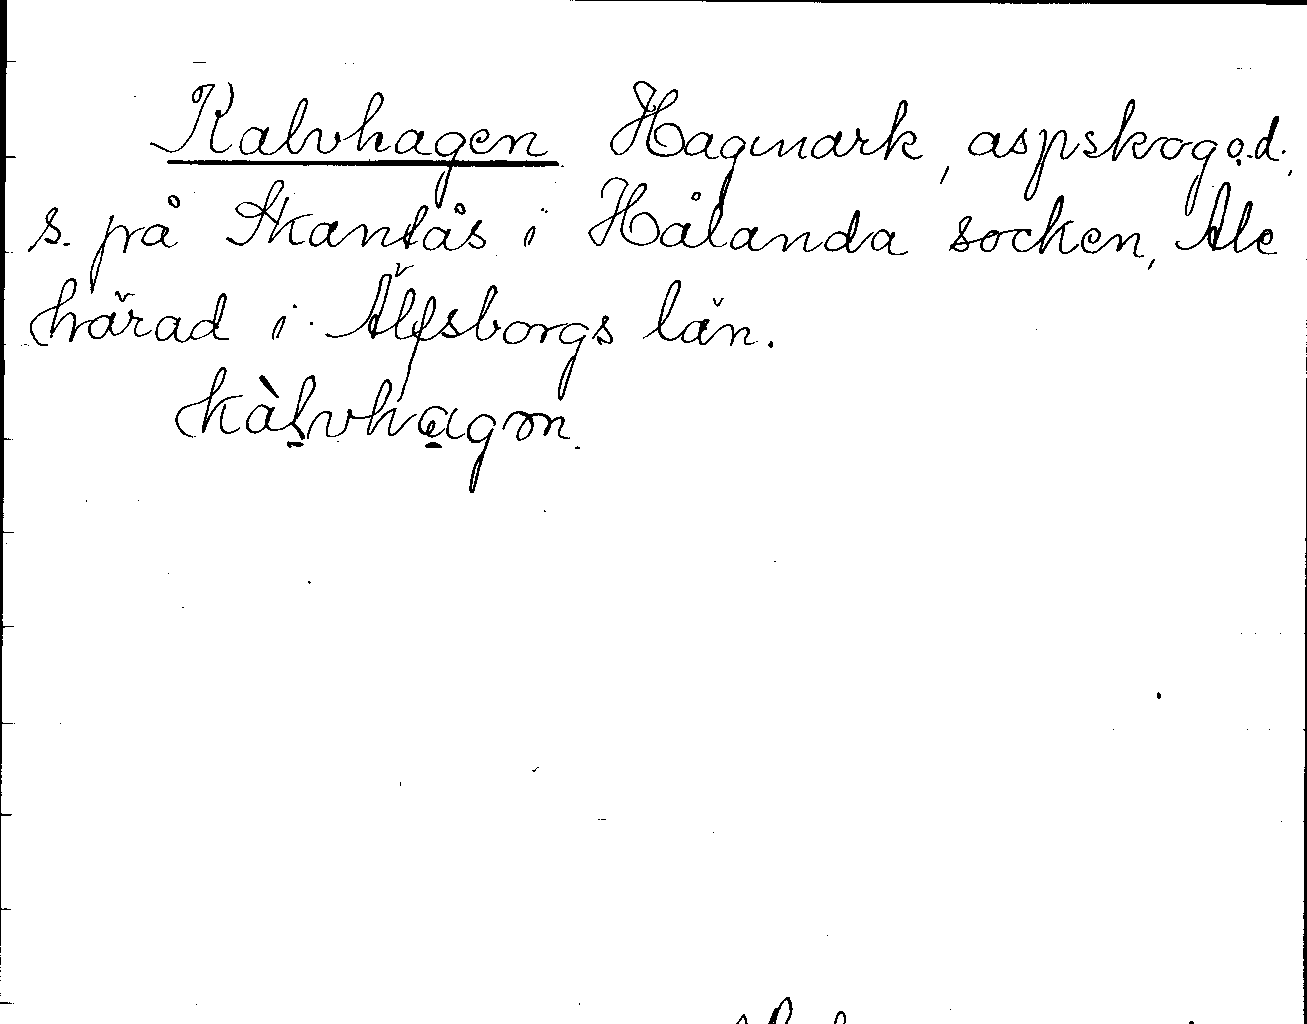 Kalvhagen Hagmark, aspskog o.d.,
s. på Skantås i Hålanda socken, Ale
härad i Älfsborgs län.
kàl̠vha̠gɘn.